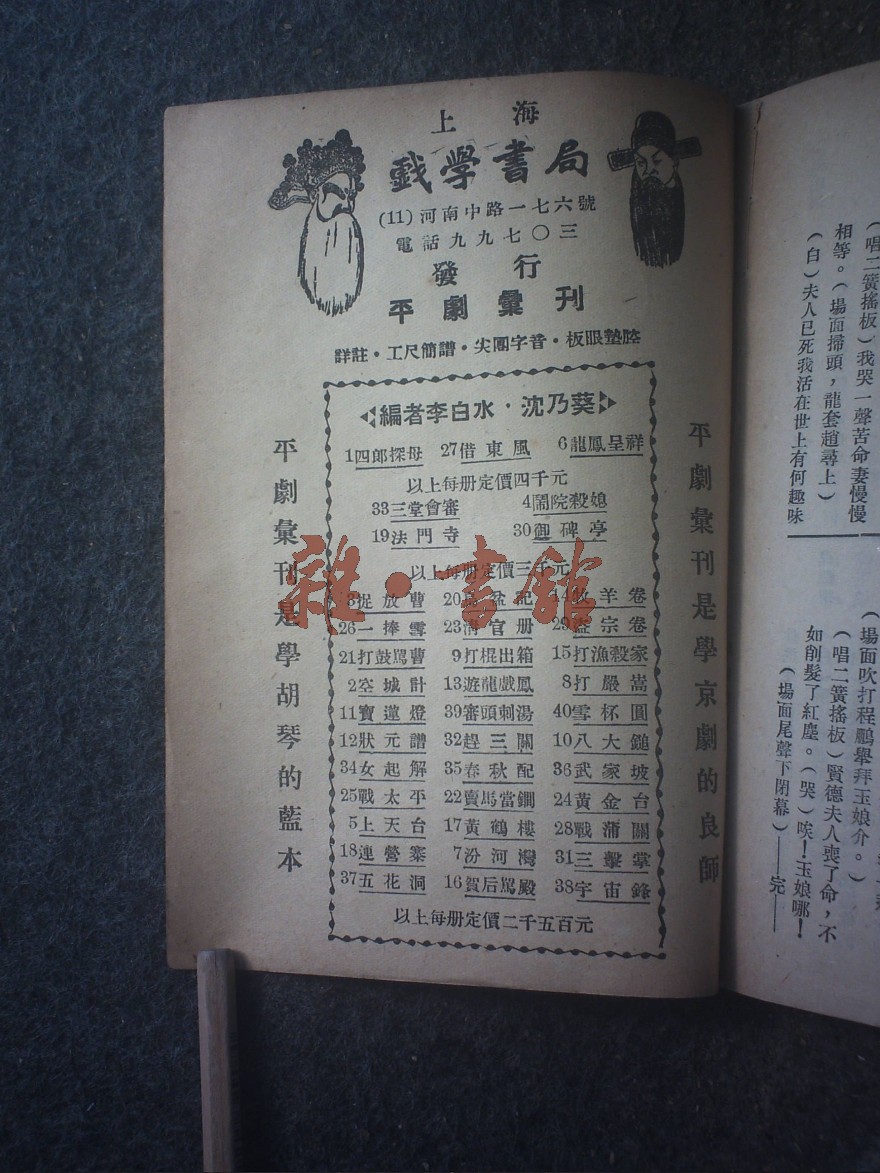 上海
戲學書局
(11)河南中路一七六號
電話九九七〇三
發行
平劇彙刊
詳註・工尺簡譜・尖團字音・板眼墊腔
編者李白水・沈乃葵
1四郎探母 27借東風 6龍鳳呈祥
以上每册定價四千元
33三堂會審 4鬧院殺媳
19法門寺 30御碑亭
以上每册定價三千元
3捉放曹 20烏盆記 14牧羊卷
26一捧雪 23清官册 29盗宗卷
21打鼓駡曹 9打棍出箱 15打漁殺家
2空城計 13遊龍戲鳳 8打嚴嵩
11寶蓮燈 39審頭刺湯 40雪杯圓
12狀元譜 32趕三關 10八大鎚
34女起解 35春秋配 36武家坡
25戰太平 22賣馬當鐧 24黃金台
5上天台 17黃鶴樓 28戰蒲關
18連營寨 7汾河灣 31三擊掌
37五花洞 16賀后駡殿 38宇宙鋒
以上每册定價二千五百元
平劇彙刊是學京劇的良師
平劇彙刊是學胡琴的藍本
雜・書館
(唱二簧搖板)我哭一聲苦命妻慢慢
相等。(場面掃頭,龍套趙尋上)
(白)夫人已死我活在世上有何趣味
(場面吹打程鵬舉拜玉娘介。)
(唱二簧搖板)賢德夫人喪了命,不
如削髮了紅塵。(哭)唉!玉娘哪!
(場面尾聲下閉幕)——完——